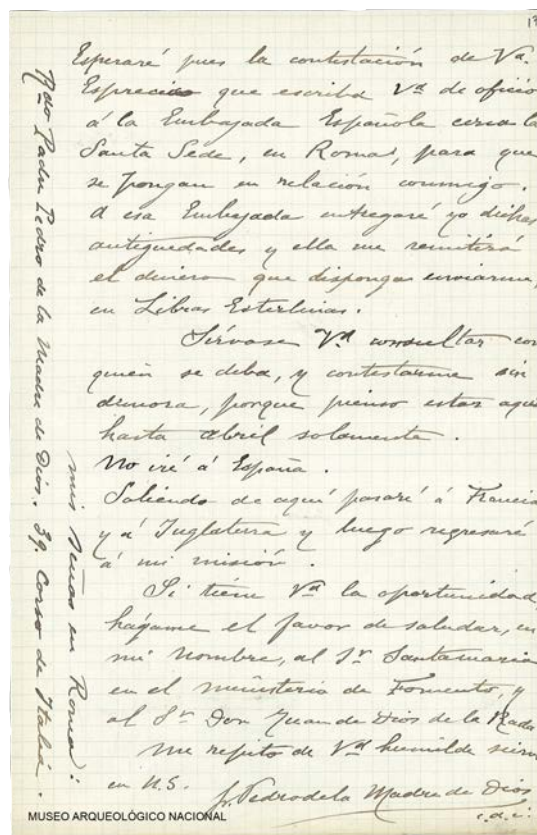 13
Esperaré pues la contestación de Vd.
Es preciso que escriba Vd de oficio
á la Embajada Española cerca la
Santa Sede, en Roma, para que
se pongan en relación conmigo.
A esa Embajada entregaré yo dichas
antiguedades y ella me remitirá
el dinero que disponga enviarme,
en Libras Esterlinas.
Sírvase Vd consultar con
quien se deba, y contestarme sin
demora, porque pienso estar aquí
hasta abril solamente.
No iré á España.
Saliendo de aquí pasaré á Francia
y á Inglaterra y luego regresaré
á mi misión.
Si tiene Vd la oportunidad,
hágame el favor de saludar, en
mi nombre, al Sr Santamaria
en el ministerio de Fomento, y
al Sr Don Juan de Dios de la Rada
me repito de Vd humilde
en N.S.
fr. Pedro de la Madre de Dios
c.d.i.
mis Señas en Roma:
Rdo Padre Pedro de la Madre de Dios. 39. Corso de Italia.
MUSEO ARQUEOLÓGICO NACIONAL